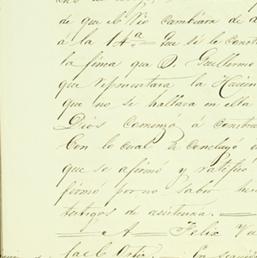 de que el Rio cambiara de
á la 14ª= Que si le const
la firma que D. Guillermo
que representara la Hacien
que no se hallava en ella
Dios comenzó á constru
Con lo cual se concluyó e
que se afirmó y ratificó
firmó por no saber
testigos de asistencia.
A Felix Va